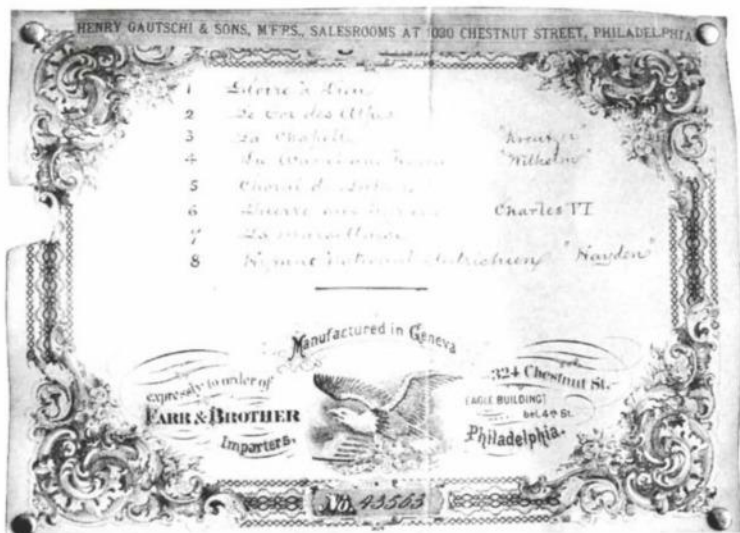 HENRY GAUTSCHI & SONS, M'F'RS., SALESROOMS AT 1030 CHESTNUT STREET, PHILADELPHIA
1
2 Le cor des Alpes
3 La Chapelle "Kreutzer"
4 "Wilhelm"
5 Choral de Luther
6 Guerre aux Charles VI
7 La Marseillaise
8 Hymne National Autrichien "Hayden"
Manufactured in Geneva
expressly to order of
FARR & BROTHER
Importers.
324 Chestnut St.
(EAGLE BUILDING)
bel. 4th St.
Philadelphia.
No. 43563